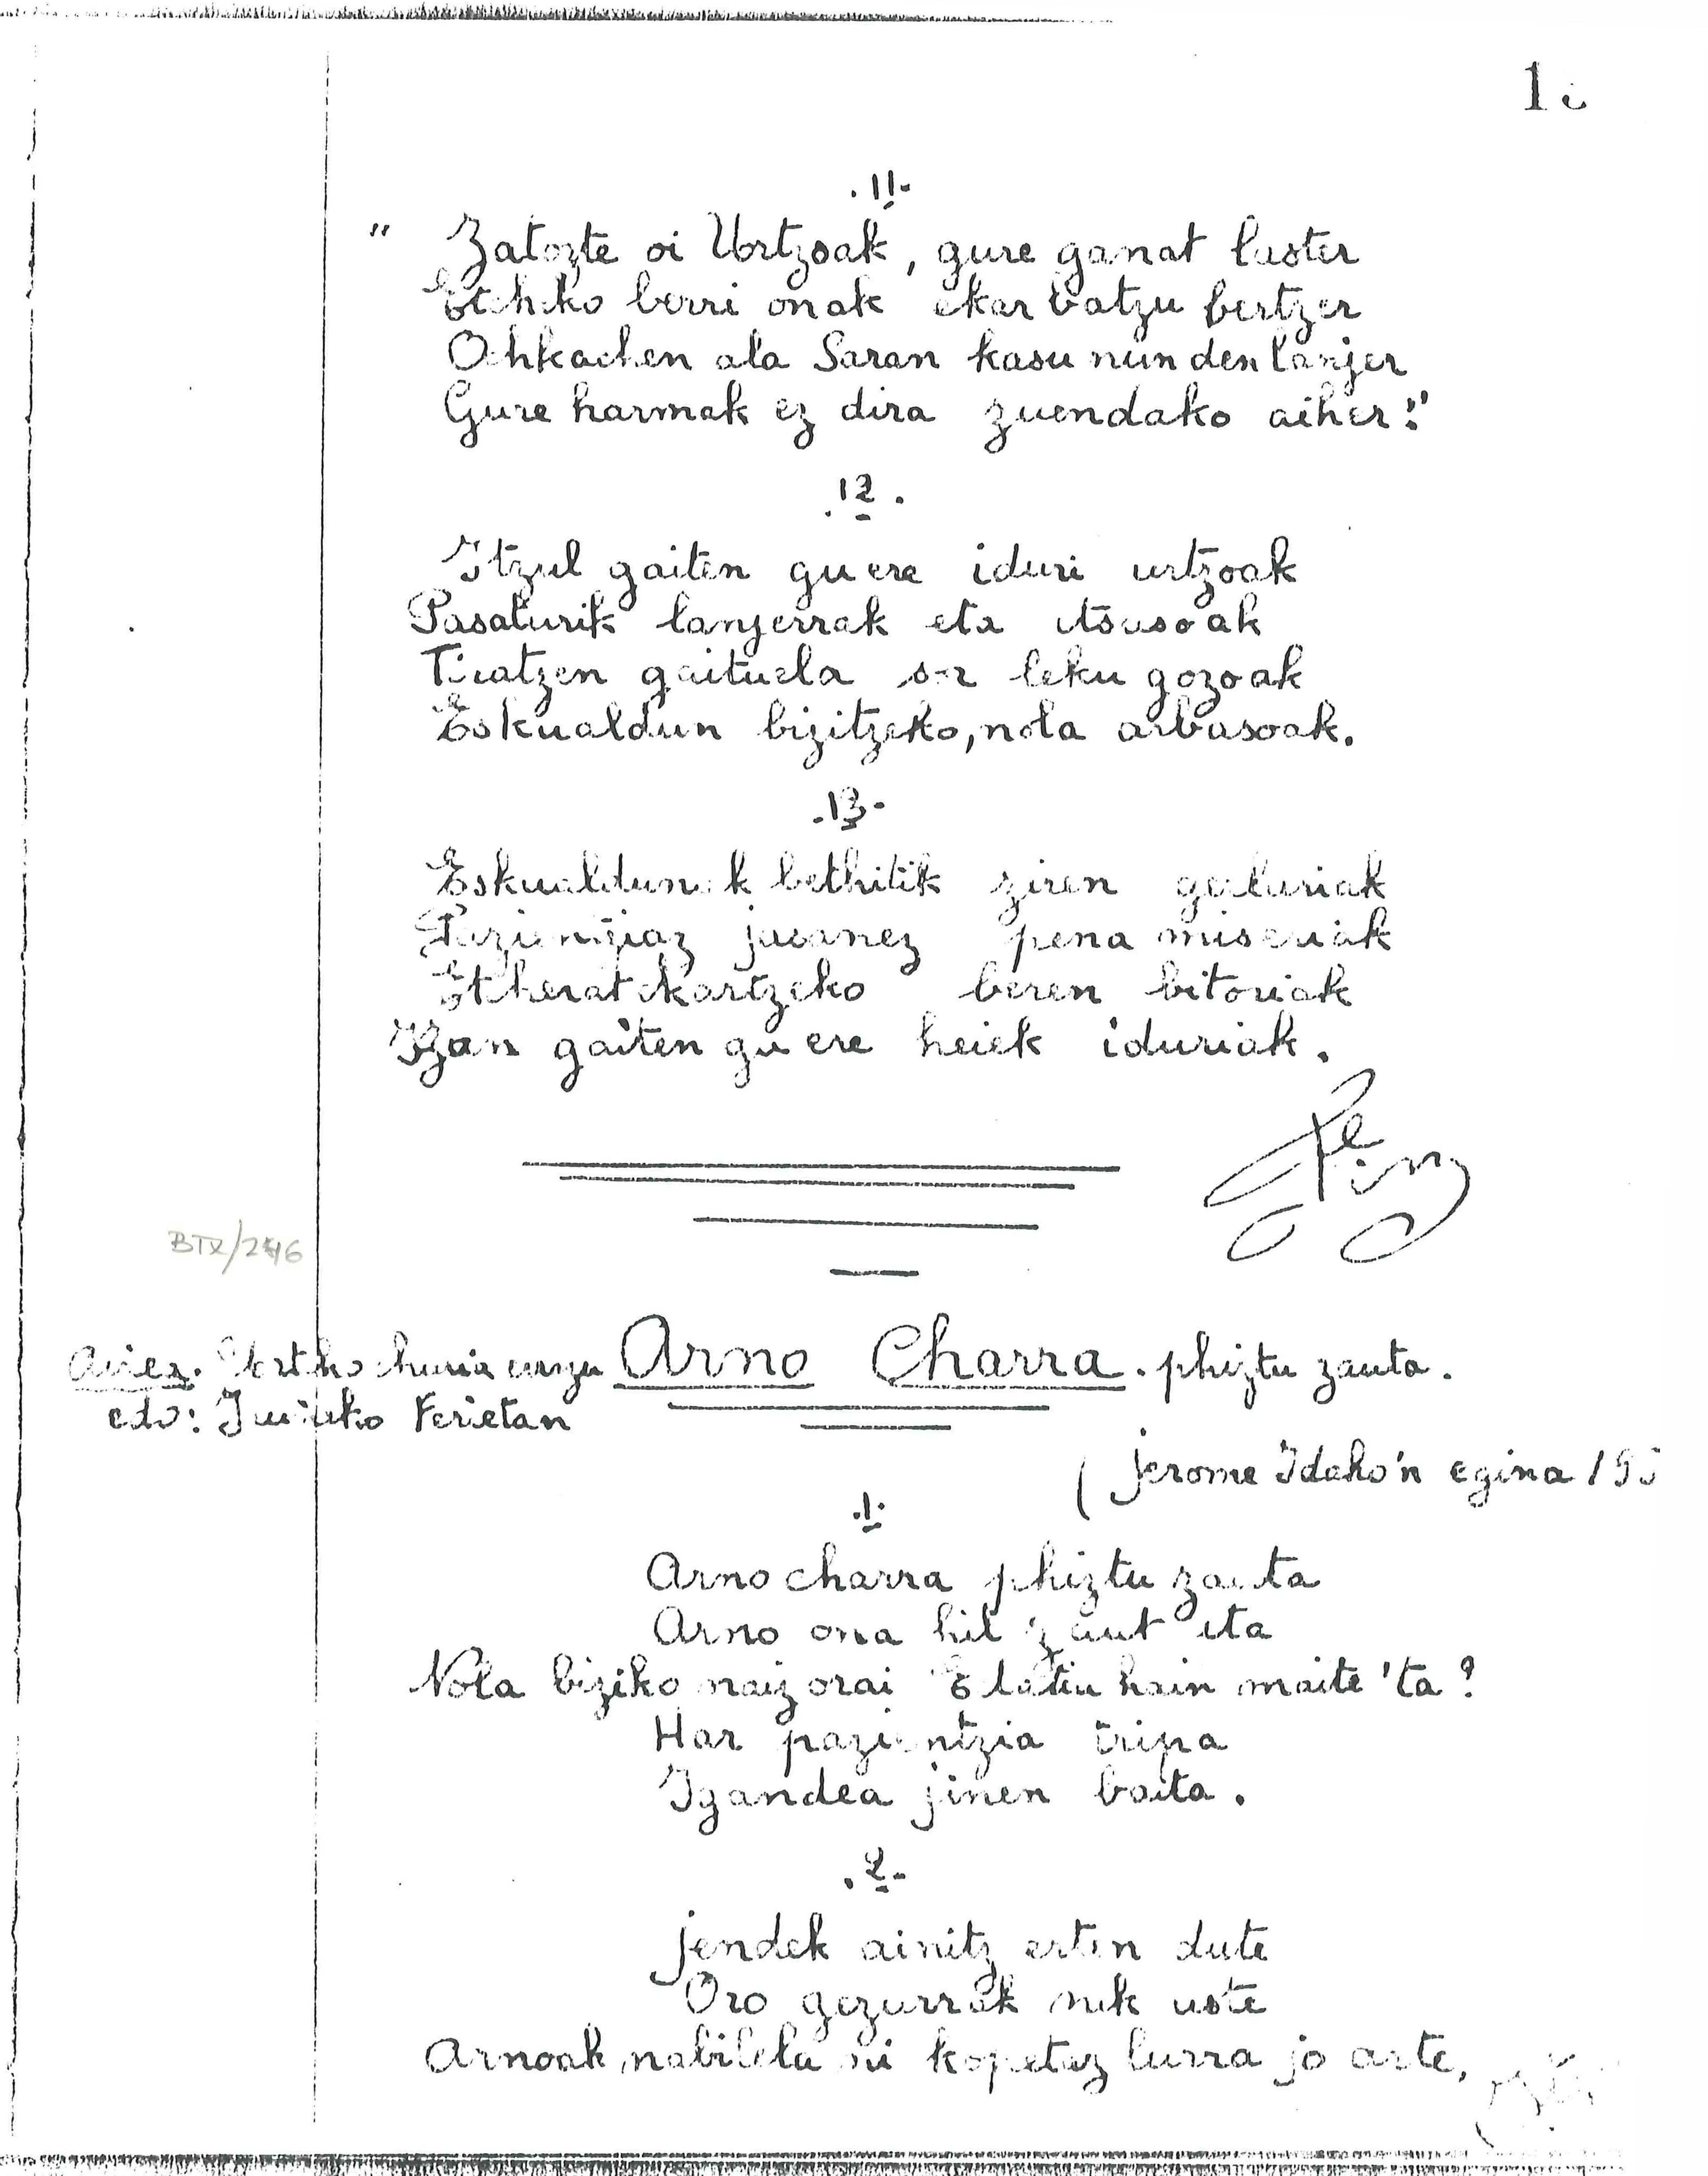 .11.
" Zatozte oi Urtzoak, gure ganat laster
Etcheko berri onak ekar batzu bertzer
Ochkachen ala Saran kasu nun den lanjer
Gure harmak ez dira zuendako aiher!"
.12.
Itzul gaiten gu ere iduri urtzoak
Pasaturik lanjerrak eta itsasoak
Tiratzen gaituela sor leku gozoak
Eskualdun bizitzeko, nola arbasoak.
.13.
Eskualdunak bethitik ziren gerlariak
Pazientziaz jasanez pena miseriak
Etcherat ekartzeko beren bitoriak
Izan gaiten gu ere heiek iduriak.
BTX/246
Airea. churia Arno Charra. phiztu zauta.
edo: Ferietan
(Jerome Idaho'n egina 195
.1.
Arno charra phiztu zauta
Arno ona hil zaut eta
Nola biziko naiz orai hain maite 'ta?
Har pazientzia tripa
Igandea jinen baita.
.2.
Jendek ainitz erten dute
Oro gezurrak nik uste
Arnoak nabilela ni kopetaz lurra jo arte,